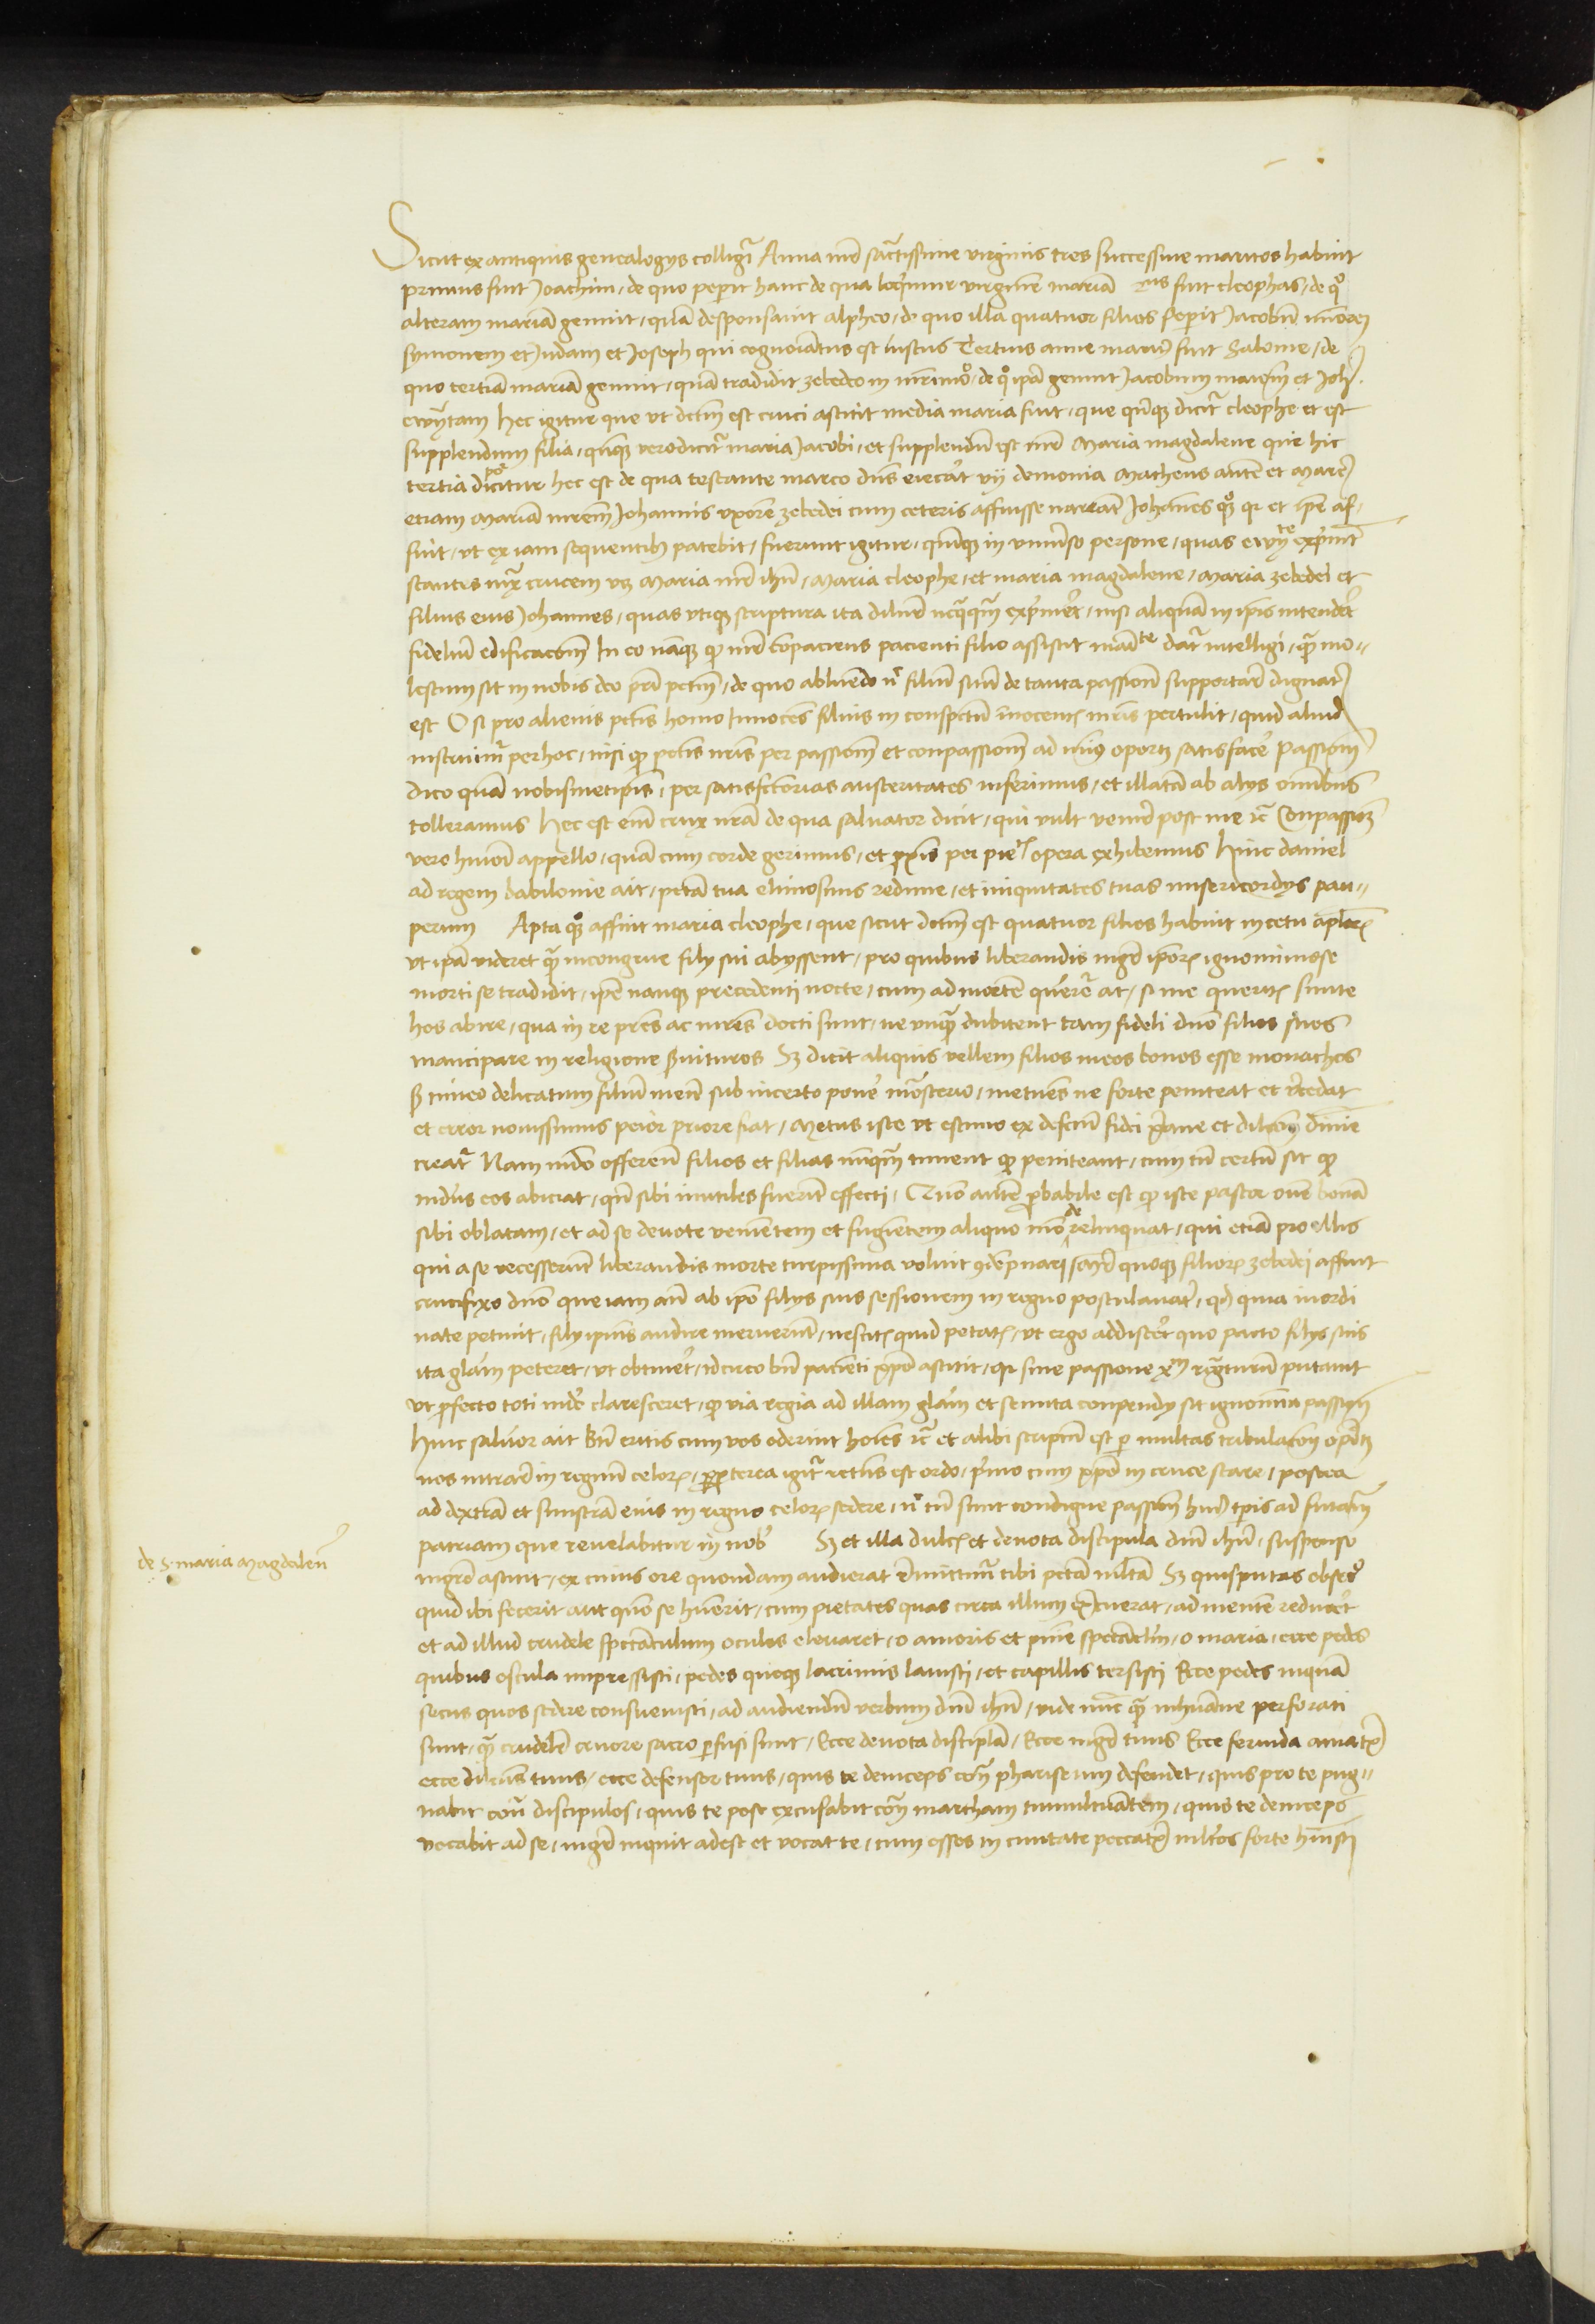 Sicut ex antiquis genealogijs colligr̃ Anna mr̃ sãctissime virginis tres successiue maritos habuit
primus fuit Joachim / de quo peperit hanc de qua loq̃mur virginẽ mariã 2us fuit cleophas / de qͦ
alteram mariã genuit / quã desponsauit alpheo / de quo illa quatuor filios peperit Jacobũ minorẽ
symonem et Judam et Joseph qui cognoĩatus est iustus Tertius anne marit9 fuit Salome / de
quo tertiã mariã genuit / quã tradidit zebedeo in mr̃imoͦ / de qͦ ipã genuit Jacobum maiorẽ et Joh̃.
ewãgtam Hec igitur que vt dctm̃ est cruci astitit media maria fuit / que qñq3 dicit̃ cleophe et est
supplendum filia / qñq3 vero dicit̃ maria Jacobi / et supplendũ est mr̃ Maria magdalene que hic
tertia dicitur hec est de qua testante marco dñs eiecerat vij demonia Matheus autẽ et Marc9
etiam Mariã mr̃em Johannis vxorẽ zebedei cum ceteris affuisse narrãt Johannes qͦ3 qi et ipẽ af-
fuit / vt ex iam sequentib9 patebit / fuerunt igitur / quinq3 in vniuerso persone / quas ewãgte exprimit
stantes iuxta crucem vz Maria mr̃ ihũ / Maria cleophe / et maria magdalene / Maria zebedei et
filius eius Johannes / quas vtiq3 scriptura ita dilucide neq̃q̃m exprimeret / nisi aliquã in ipis intenderet
fideliũ edificacõm In eo nãq3 qp mr̃ cõpaciens pacienti filio assistit dat̃ intelligi / q̃ mo-
lestum sit in nobis deo pr̃i pctm̃ / de quo abluendo filiũ suũ de tanta passionẽ supportare dignat9
est O si pro alienis pctis homo Innocẽs filius in conspectu innocentis mr̃is pertulit / quid aliud
instruimur per hoc / nisi qp pctis nr̃is per passionẽ et conpassionẽ ad min9 oportz satisfacere Passionẽ
dico quã nobismetipis / per satisfactorias austeritates inferimus / et illatã ab alijs omnibus
tolleramus Hec est enĩ crux nr̃a de qua saluator dicit / qui vult venire post me rc̃ Conpassionẽ
vero hmõi appello / quã cum corde gerimus / et proximis per pietatis opera exhibemus Hinc daniel
ad regem babilonie ait / pctã tua elimosinis redime / et iniquitates tuas misericordijs pau-
perum Apta qͦ3 affuit maria cleophe / que sicut dctm̃ est quatuor filios habuit in cetu aplor̃
vt ipã videret q̃ incongrue filij sui abijssent / pro quibus liberandis mgr̃ ipor̃ ignominiose
morti se tradidit / ipẽ nanq3 precedenti nocte / cum ad mortẽ querer̃t ait / si me querit̃ sinite
hos abire / qua in re pr̃es ac mr̃es docti sunt / ne vnq̃ dubitent tam fideli dño filios suos
mancipare in religione seruituros Sz dicit aliquis vellem filios meos bonos esse monachos
sz timeo delicatum filiũ meũ sub incerto ponere monasterio / metuens ne forte peniteat et recedat
et error nouissimus peior priore fiat / Metus iste vt estimo ex defectu fidei prane et dilcõnis diuine
creat̃ Nam mũdo offerent̃ filios et filias nũq̃m timent qp peniteant / cum tñ certũ sit qp
mũdus eos abiciat / qñ sibi inutiles fuerit effecti / Quõ autẽ probabile est qp iste pastor ouẽ bonã
sibi oblatam / et ad se deuote venientem et fugientem aliquo mõ derelinquat / qui etiã pro illis
qui a se recesserunt liberandis morte turpissima voluit 9dẽpnari Mr̃ quoq3 filior̃ zebedei affuit
crucifixo dño que iam añ ab ipo filijs suis sessionem in regno postulauat̃ / qd quia inordi
nate petiuit / filij ipius audire meruerũt / nescit̃ quid petat̃ / vt ergo addisceret quo pacto filijs suis
ita gl̃am peteret / vt obtineret / idcirco bñ pacienti xp̃o astitit / qi sine passione xp̃m regnaturũ putauit
vt profecto toti mũdo claresceret / qp via regia ad illam gl̃am et semita conpendij sit ignominia passionis
Hinc saluator ait bti eritis cum vos oderint hoĩes rc̃ et alibi scriptũ est p multas tribulacões oportz
nos intrare in regnũ celor̃ / propterea igit̃ rectus est ordo / primo cum xp̃o in cruce stare / postea
ad dextrã et sinistrã eius in regno celor̃ sedere / nõ tñ sunt condigne passiones hui9 tpis ad futuram
patriam que reuelabitur in nob̃ Sz et illa dulcis et deuota discipula dñi ihũ / suspenso
mgr̃o astitit / ex cuius ore quondam audierat remittunt̃ tibi pctã multa Sz quis putas obsecro
quid ibi fecerit aut quõ se habuerit / cum pietates quas circa illum exercuerat / ad mentẽ reduceret
et ad illud crudele spectaculum oculos eleuaret / o amoris et pene spectaclm̃ / o maria / ecce pedes
quibus oscula impressisti / pedes quoq3 lacrimis lauisti / et capillis tersisti Ecce pedes inquã
secus quos sedere consueuisti / ad audiendũ verbum dñi ihũ / vide nũc q̃ inhumane perforati
sunt / q̃ crudeliter cruore sacro perfusi sunt / Ecce deuota discipl̃a / Ecce mgr̃ tuus Ecce feruida amat̃x
ecce dilcũs tuus / ecce defensor tuus / quis te deinceps cont̃ phariseum defendet / quis pro te pug-
nabit cont̃ discipulos / quis te post excusabit cont̃ martham tumultuãtem / quis te deinceps
vocabit ad se / mgr̃ inquit adest et vocat te / cum esses in ciuitate peccat̃x multos forte hũisti
de S. maria Magdalen̄